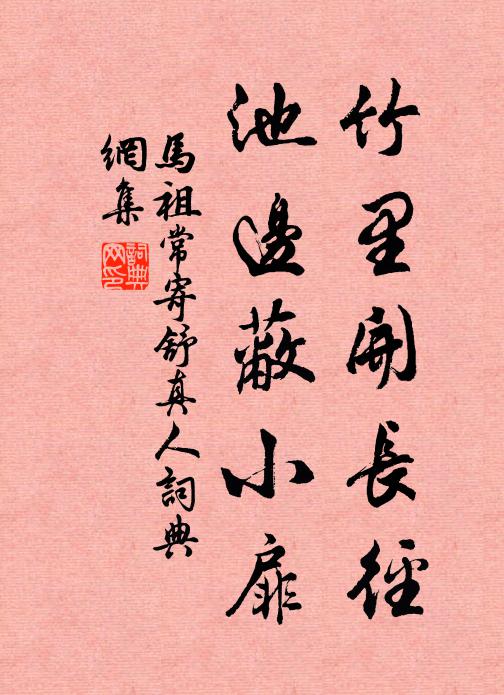 竹里開長徑
池邊蔽小扉
馬祖常寄舒真人詞典
網集
詞典
网印